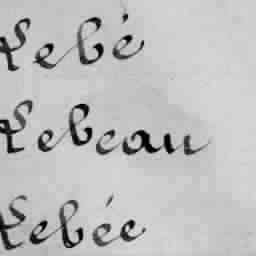 Lebé
Lebeau
Lebée